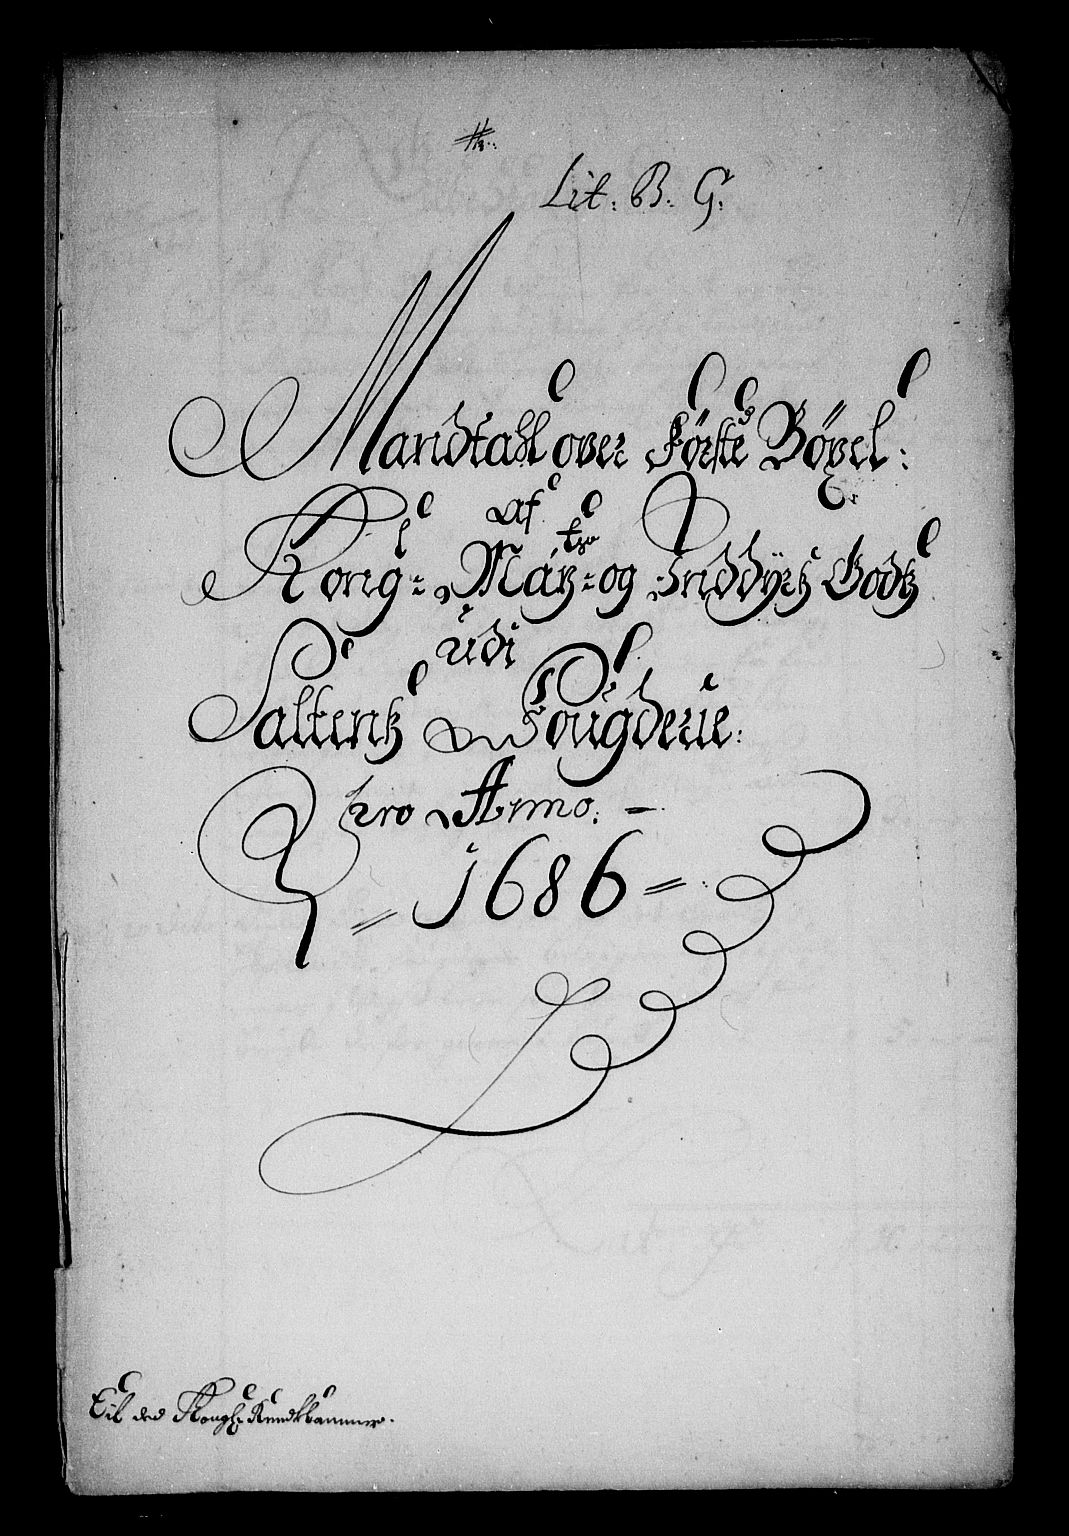 Lit. B. G.
Mandtahl over Første Böxel:
af
Kong: Maytz: og Inddyrtz Godtz
udi
Saltens Fougderie:
pro Anno. –
= 1686 =
Til det Kongl: Rendtkammer.